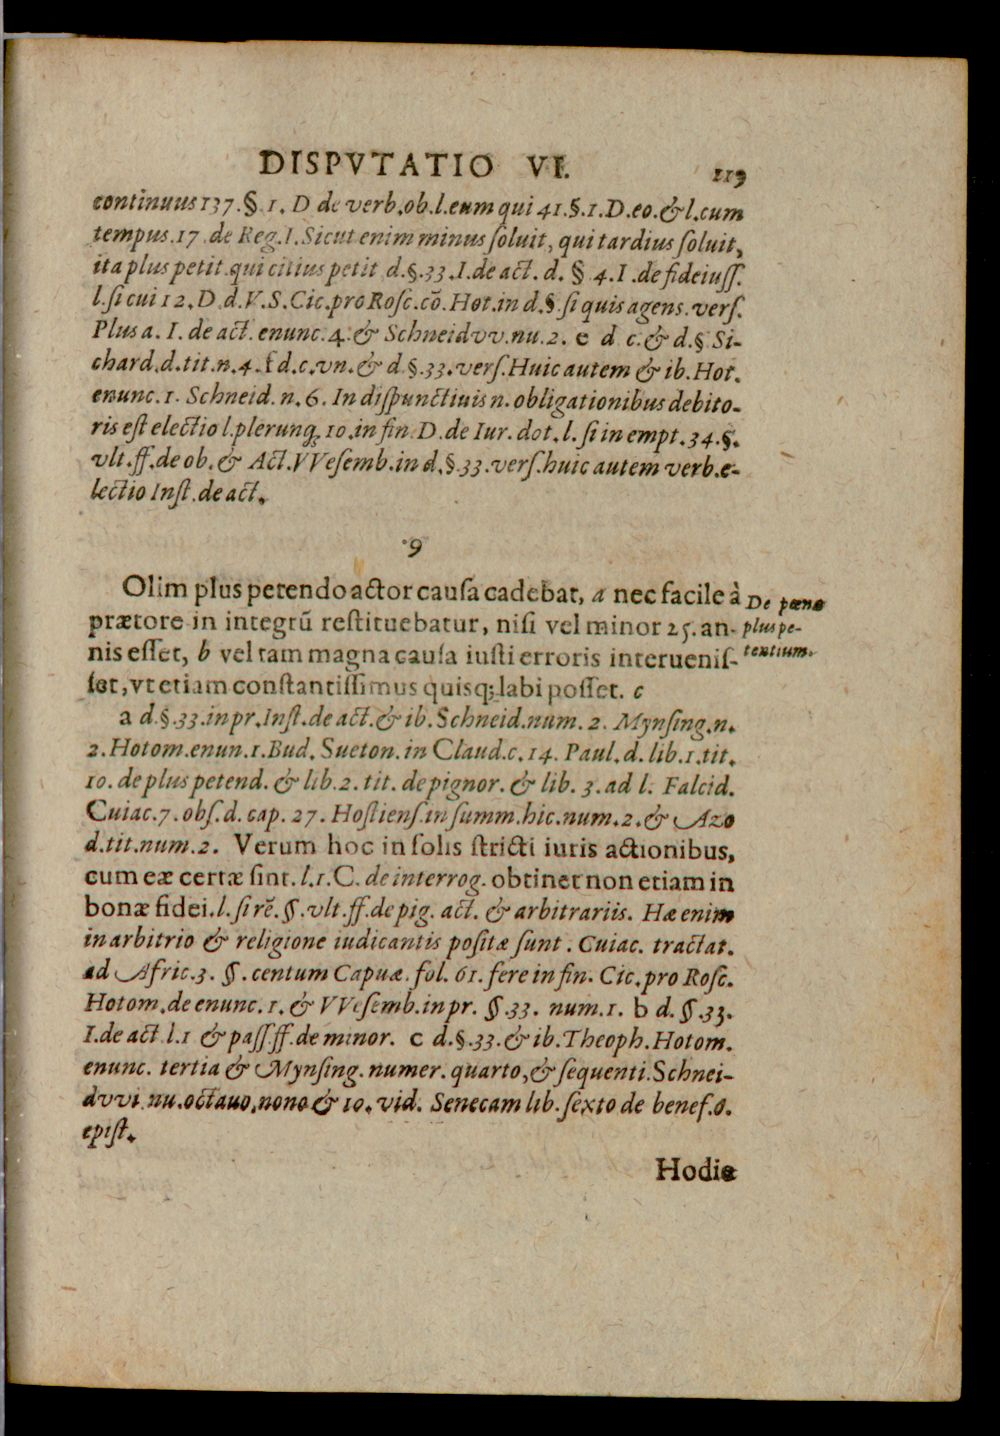 DISPVTATIO VI. 119
continuus 137. §. 1. D de verb. ob. l. eum qui 41. §. 1. D. eo. & l. cum
tempus. 17 de Reg. I. Sicut enim minus ſoluit, qui tardius ſoluit,
ita plus petit qui citius petit d. §. 33. I. de act. d. § 4. I. de fideiuſſ.
l. ſi cui 12. D. d. V. S. Cic. pro Roſc. cõ. Hot. in d. §. ſi quis agens. verſ.
Plus a. I. de act. enunc. 4. & Schneidvv. nu. 2. e d c. & d. § Si-
chard. d. tit. n. 4. f d. c. vn. & d §. 33. verſ. Huic autem & ib. Hot.
enunc. 1. Schneid. n. 6. In diſpunctiuis n. obligationibus debito-
ris eſt electio l. plerunq; 10. in fin D. de Iur. dot. l. ſi in empt. 34. §.
vlt. ff. de ob. & Act. VVeſemb. in d. §. 33. verſ. huic autem verb. e-
lectio Inſt. de act.
9
Olim plus petendo actor cauſa cadebat, a nec facile à
De pœna
prætore in integrũ reſtituebatur, niſi vel minor 25. an-
plus pe-
nis eſſet, b vel tam magna cauſa iuſti erroris interueniſ-
tentium.
ſet, vt etiam conſtantiſſimus quisq; labi poſſet. c
a d. §. 33. in pr. Inſt. de act. & ib. Schneid. num. 2. Mynſing. n.
2. Hotom. enun. 1. Bud. Sueton. in Claud. c. 14. Paul. d. lib. 1. tit.
10. de plus petend. & lib. 2. tit. de pignor. & lib. 3. ad l. Falcid.
Cuiac. 7. obſ. d. cap. 27. Hoſtienſ. in ſumm. hic. num. 2. & Azo
d. tit. num. 2. Verum hoc in ſolis ſtricti iuris actionibus,
cum eæ certæ ſint. l. 1. C. de interrog. obtinet non etiam in
bonæ fidei. l. ſi rẽ. §. vlt. ff. de pig. act. & arbitrariis. Hæ enim
in arbitrio & religione iudicantis poſitæ ſunt. Cuiac. tractat.
ad Afric. 3. §. centum Capuæ. fol. 61. fere in fin. Cic. pro Roſc.
Hotom. de enunc. 1. & VVeſemb. in pr. §. 33. num. 1. b d. §. 33.
I. de act l. 1 & paſſ. ff. de minor. c d. §. 33. & ib. Theoph. Hotom.
enunc. tertia & Mynſing. numer. quarto, & ſequenti. Schnei-
dvvi. nu. octauo, nono & 10. vid. Senecam lib. ſexto de benef. 0.
epiſt.
Hodie